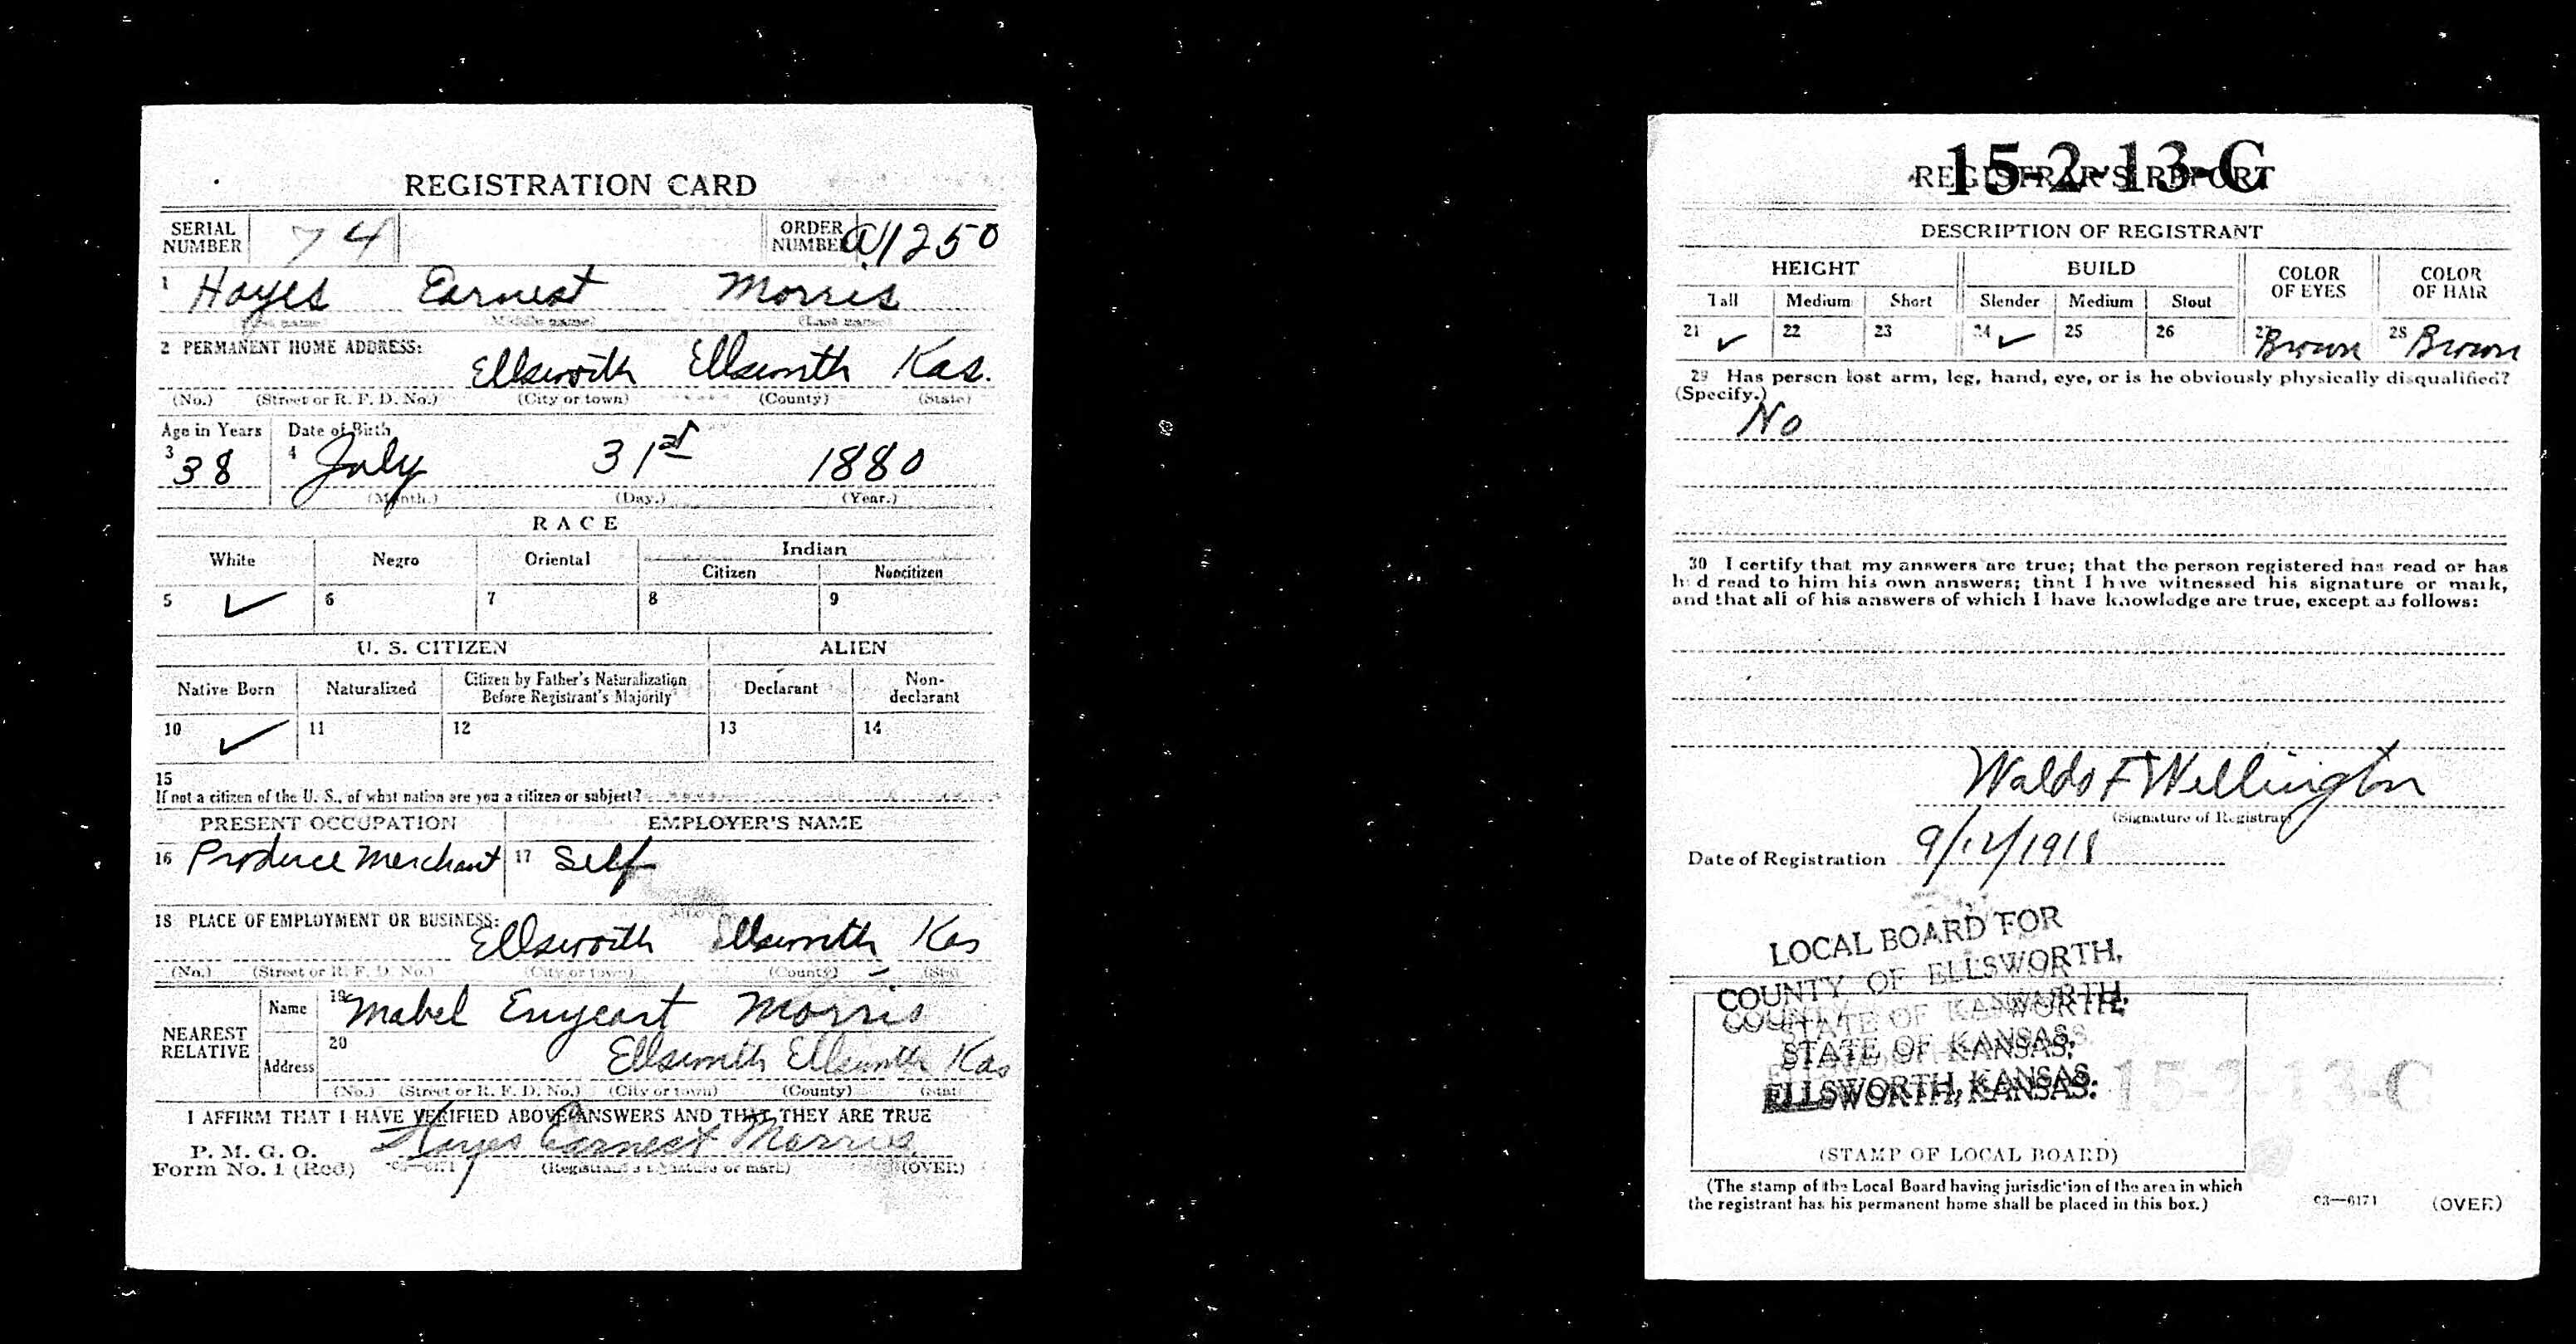 REGISTRATION CARD
SERIAL NUMBER 74 ORDER NUMBER A1250
1 Hayes Earnest Morris
(First name) (Middle name) (Last name)
2 PERMANENT HOME ADDRESS:
Ellsworth Ellsworth Kas.
(No.) (Street or R. F. D. No.) (City or town) (County) (State)
Age in Years Date of Birth
3 38 4 July 31st 1880
(Month.) (Day.) (Year.)
RACE
White Negro Oriental Indian
Citizen Noncitizen
5 ✓ 6 7 8 9
U. S. CITIZEN ALIEN
Native Born Naturalized Citizen by Father's Naturalization Before Registrant's Majority Declarant Non-declarant
10 ✓ 11 12 13 14
15
If not a citizen of the U. S., of what nation are you a citizen or subject?
PRESENT OCCUPATION EMPLOYER'S NAME
16 Produce Merchant 17 Self
18 PLACE OF EMPLOYMENT OR BUSINESS:
Ellsworth Ellsworth Kas
(No.) (Street or R. F. D. No.) (City or town) (County) (State)
NEAREST RELATIVE
Name 19 Mabel Enyeart Morris
Address 20 Ellsworth Ellsworth Kas
(No.) (Street or R. F. D. No.) (City or town) (County) (State)
I AFFIRM THAT I HAVE VERIFIED ABOVE ANSWERS AND THAT THEY ARE TRUE
P. M. G. O.
Form No. 1 (Red) 03—6171 Hayes Earnest Morris
(Registrant's signature or mark) (OVER)
15-2-13-C
REGISTRAR'S REPORT
DESCRIPTION OF REGISTRANT
HEIGHT BUILD COLOR OF EYES COLOR OF HAIR
Tall Medium Short Slender Medium Stout
21 ✓ 22 23 24 ✓ 25 26 27 Brown 28 Brown
29 Has person lost arm, leg, hand, eye, or is he obviously physically disqualified?
(Specify.)
No
30 I certify that my answers are true; that the person registered has read or has
had read to him his own answers; that I have witnessed his signature or mark,
and that all of his answers of which I have knowledge are true, except as follows:
Waldo F Wellington
(Signature of Registrar)
Date of Registration 9/12/1918
LOCAL BOARD FOR
COUNTY OF ELLSWORTH,
STATE OF KANSAS,
ELLSWORTH, KANSAS.
15-2-13-C
(STAMP OF LOCAL BOARD)
(The stamp of the Local Board having jurisdiction of the area in which
the registrant has his permanent home shall be placed in this box.)
03—6171 (OVER)